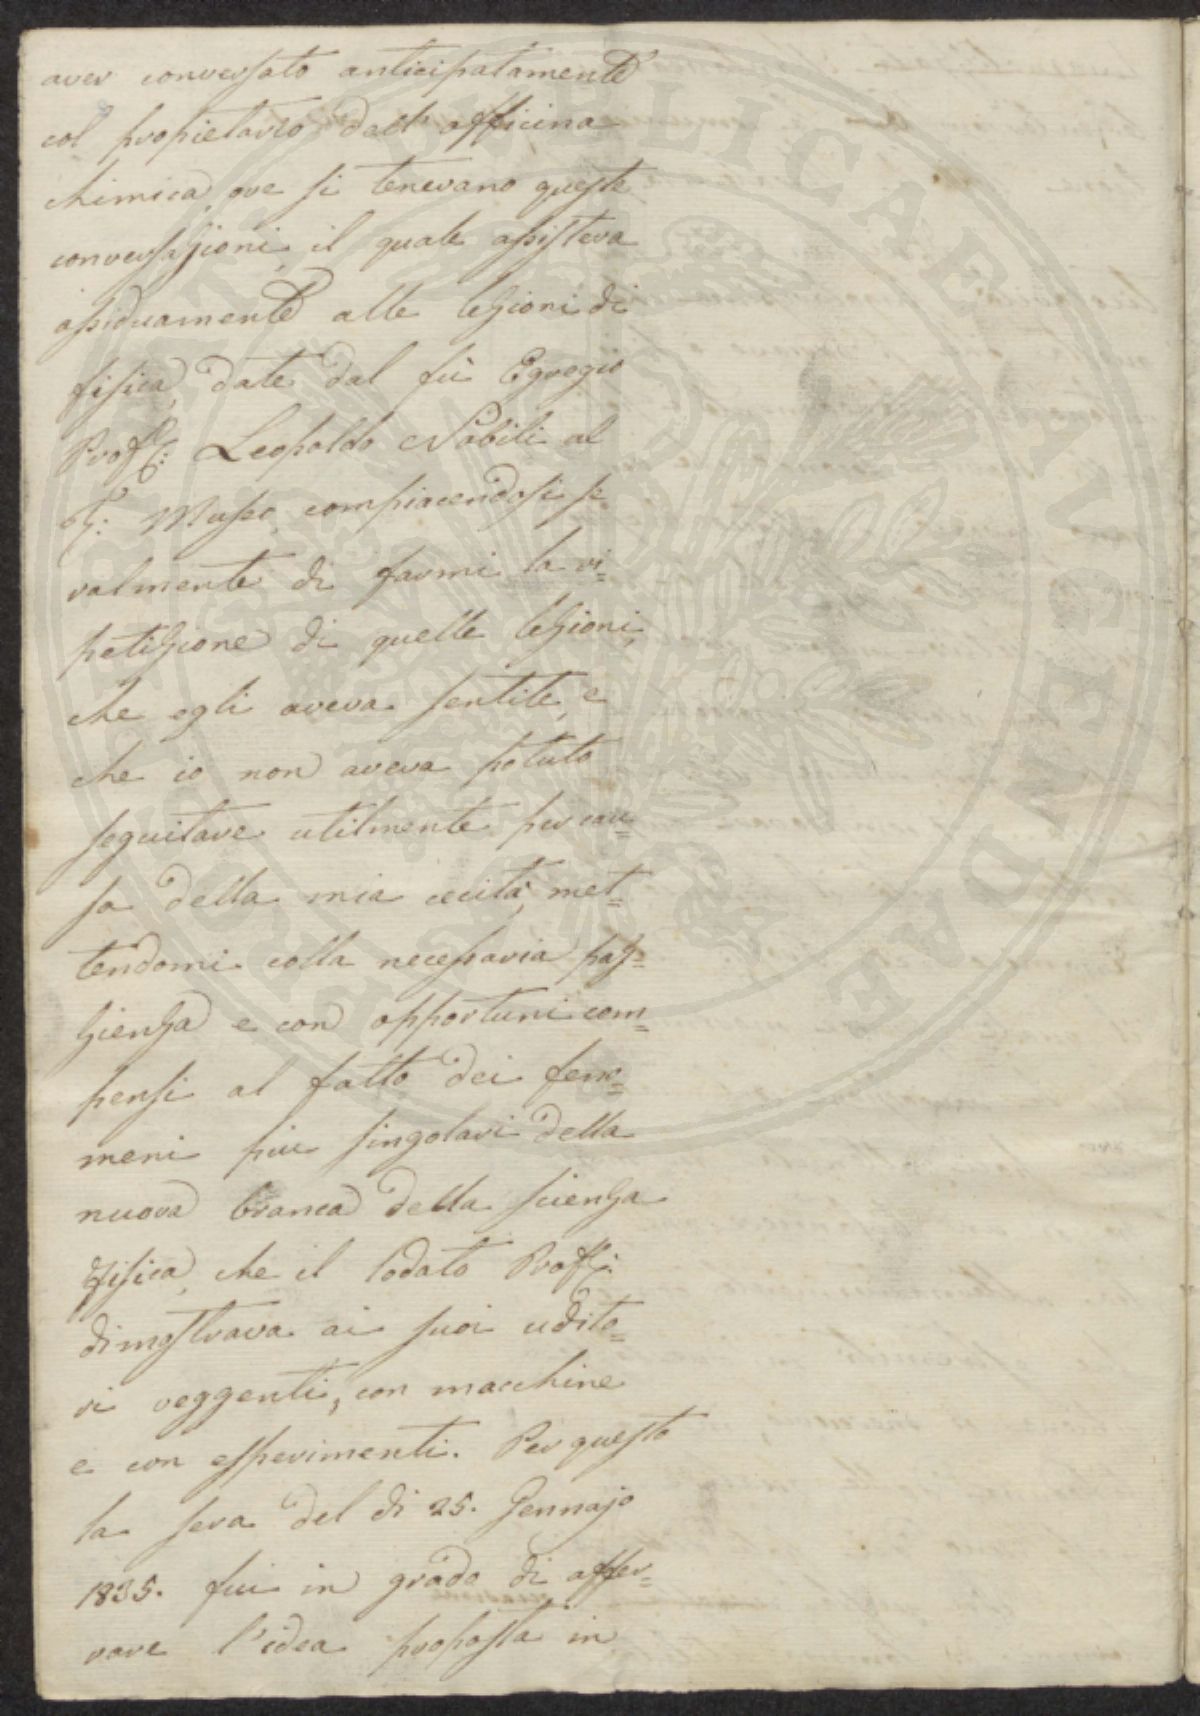 aver conversato anticipatamente
col propietario dell'officina
chimica, ove si tenevano queste
conversazioni, il quale assisteva
assiduamente alle lezioni di
fisica, date dal fù Egregio
Prof.: Leopoldo Nobili al
Museo, compiacendosi se
ralmente di farmi la ri=
petizione di quelle lezioni,
che egli aveva sentite, e
che io non aveva potuto
seguitare utilmente per cau=
sa della mia cecità, met=
tendomi colla necessaria paz=
zienza e con opportuni com=
pensi al fatto dei feno=
meni più singolari della
nuova branca della scienza
Fisica, che il lodato Prof.:
dimostrava ai suoi udito=
ri veggenti, con macchine
e con esperimenti. Per questo
la sera del dì 25. Gennajo
1835. fui in grado di affer=
rare l'idea proposta in
PUBLICAE AUGENDAE